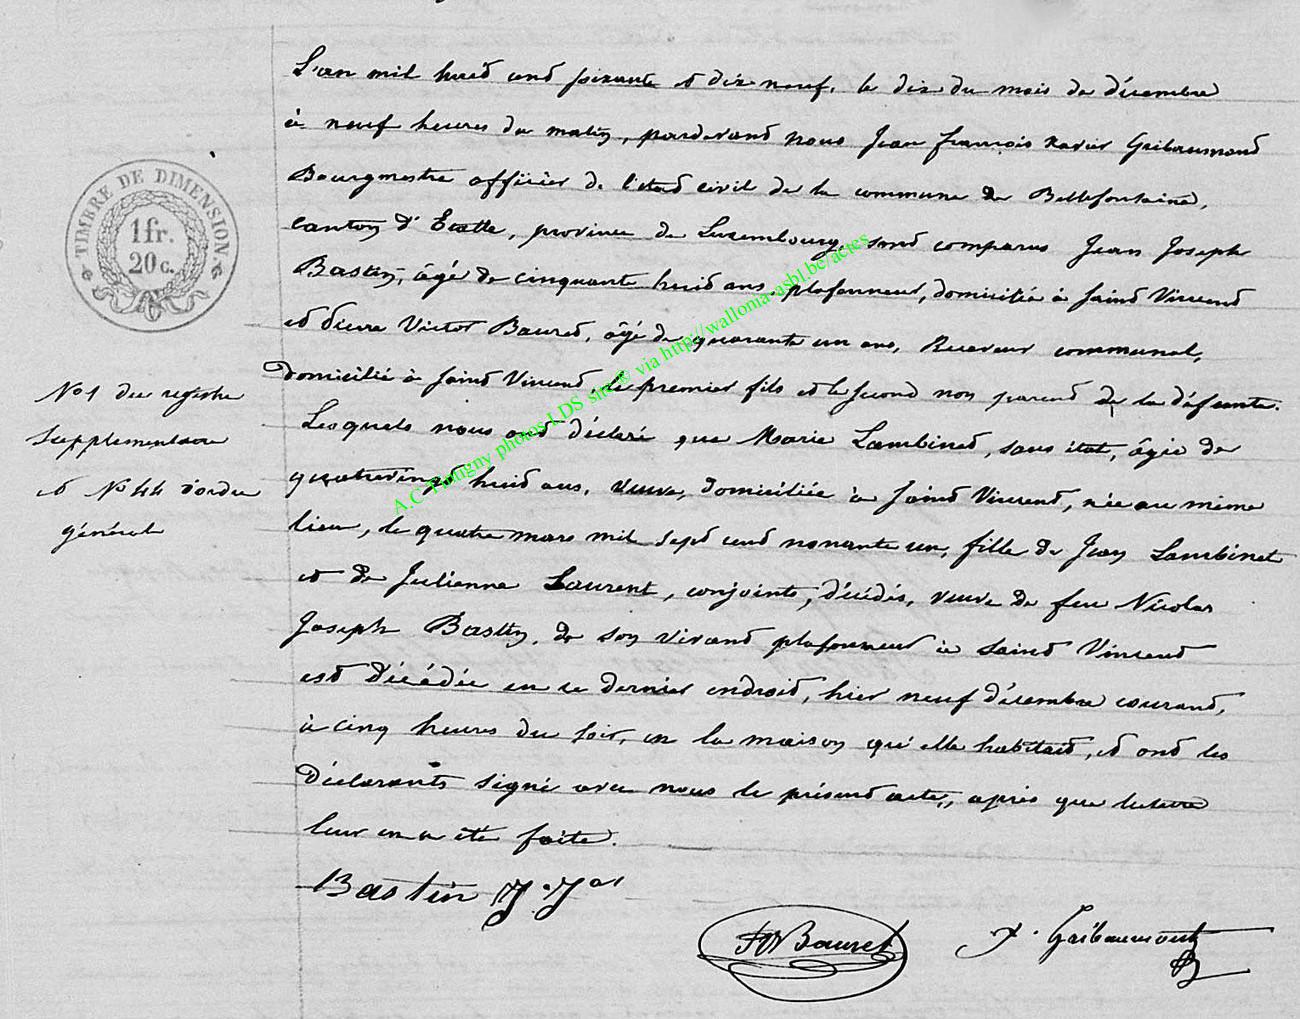 L'an mil huit cent soixante et dix neuf, le dix du mois de décembre
à neuf heures du matin, pardevant nous Jean françois Xavier Gribaumont
Bourgmestre officier de l'état civil de la commune de Bellefontaine,
canton d'Etalle, province de Luxembourg, sont comparus Jean Joseph
Bastin, âgé de cinquante huit ans, plafonneur, domicilié à Saint Vincent
et Victor Bauret, âgé de quarante un ans, Receveur communal,
domicilié à Saint Vincent, le premier fils et le second non parent de la défunte.
Lesquels nous ont déclaré que Marie Lambinet, sans état, âgée de
quatrevingt huit ans, veuve, domiciliée à Saint Vincent, née au même
lieu, le quatre mars mil sept cent nonante un, fille de Jean Lambinet
et de Julienne Laurent, conjoints, décédés, veuve de feu Nicolas
Joseph Bastin, de son vivant plafonneur à Saint Vincent
est décédée en ce dernier endroit, hier neuf décembre courant,
à cinq heures du soir, en la maison qu'elle habitait, et ont les
déclarants signé avec nous le présent acte, après que lecture
leur en a été faite.
Bastin J. Jos
Bauret
Gribaumont
TIMBRE DE DIMENSION
1fr.
20 c.
No 1 du registre
Supplémentaire
et No 44 d'ordre
général
A.C. Tintigny photos LDS site® via http://wallonia-asbl.be/actes